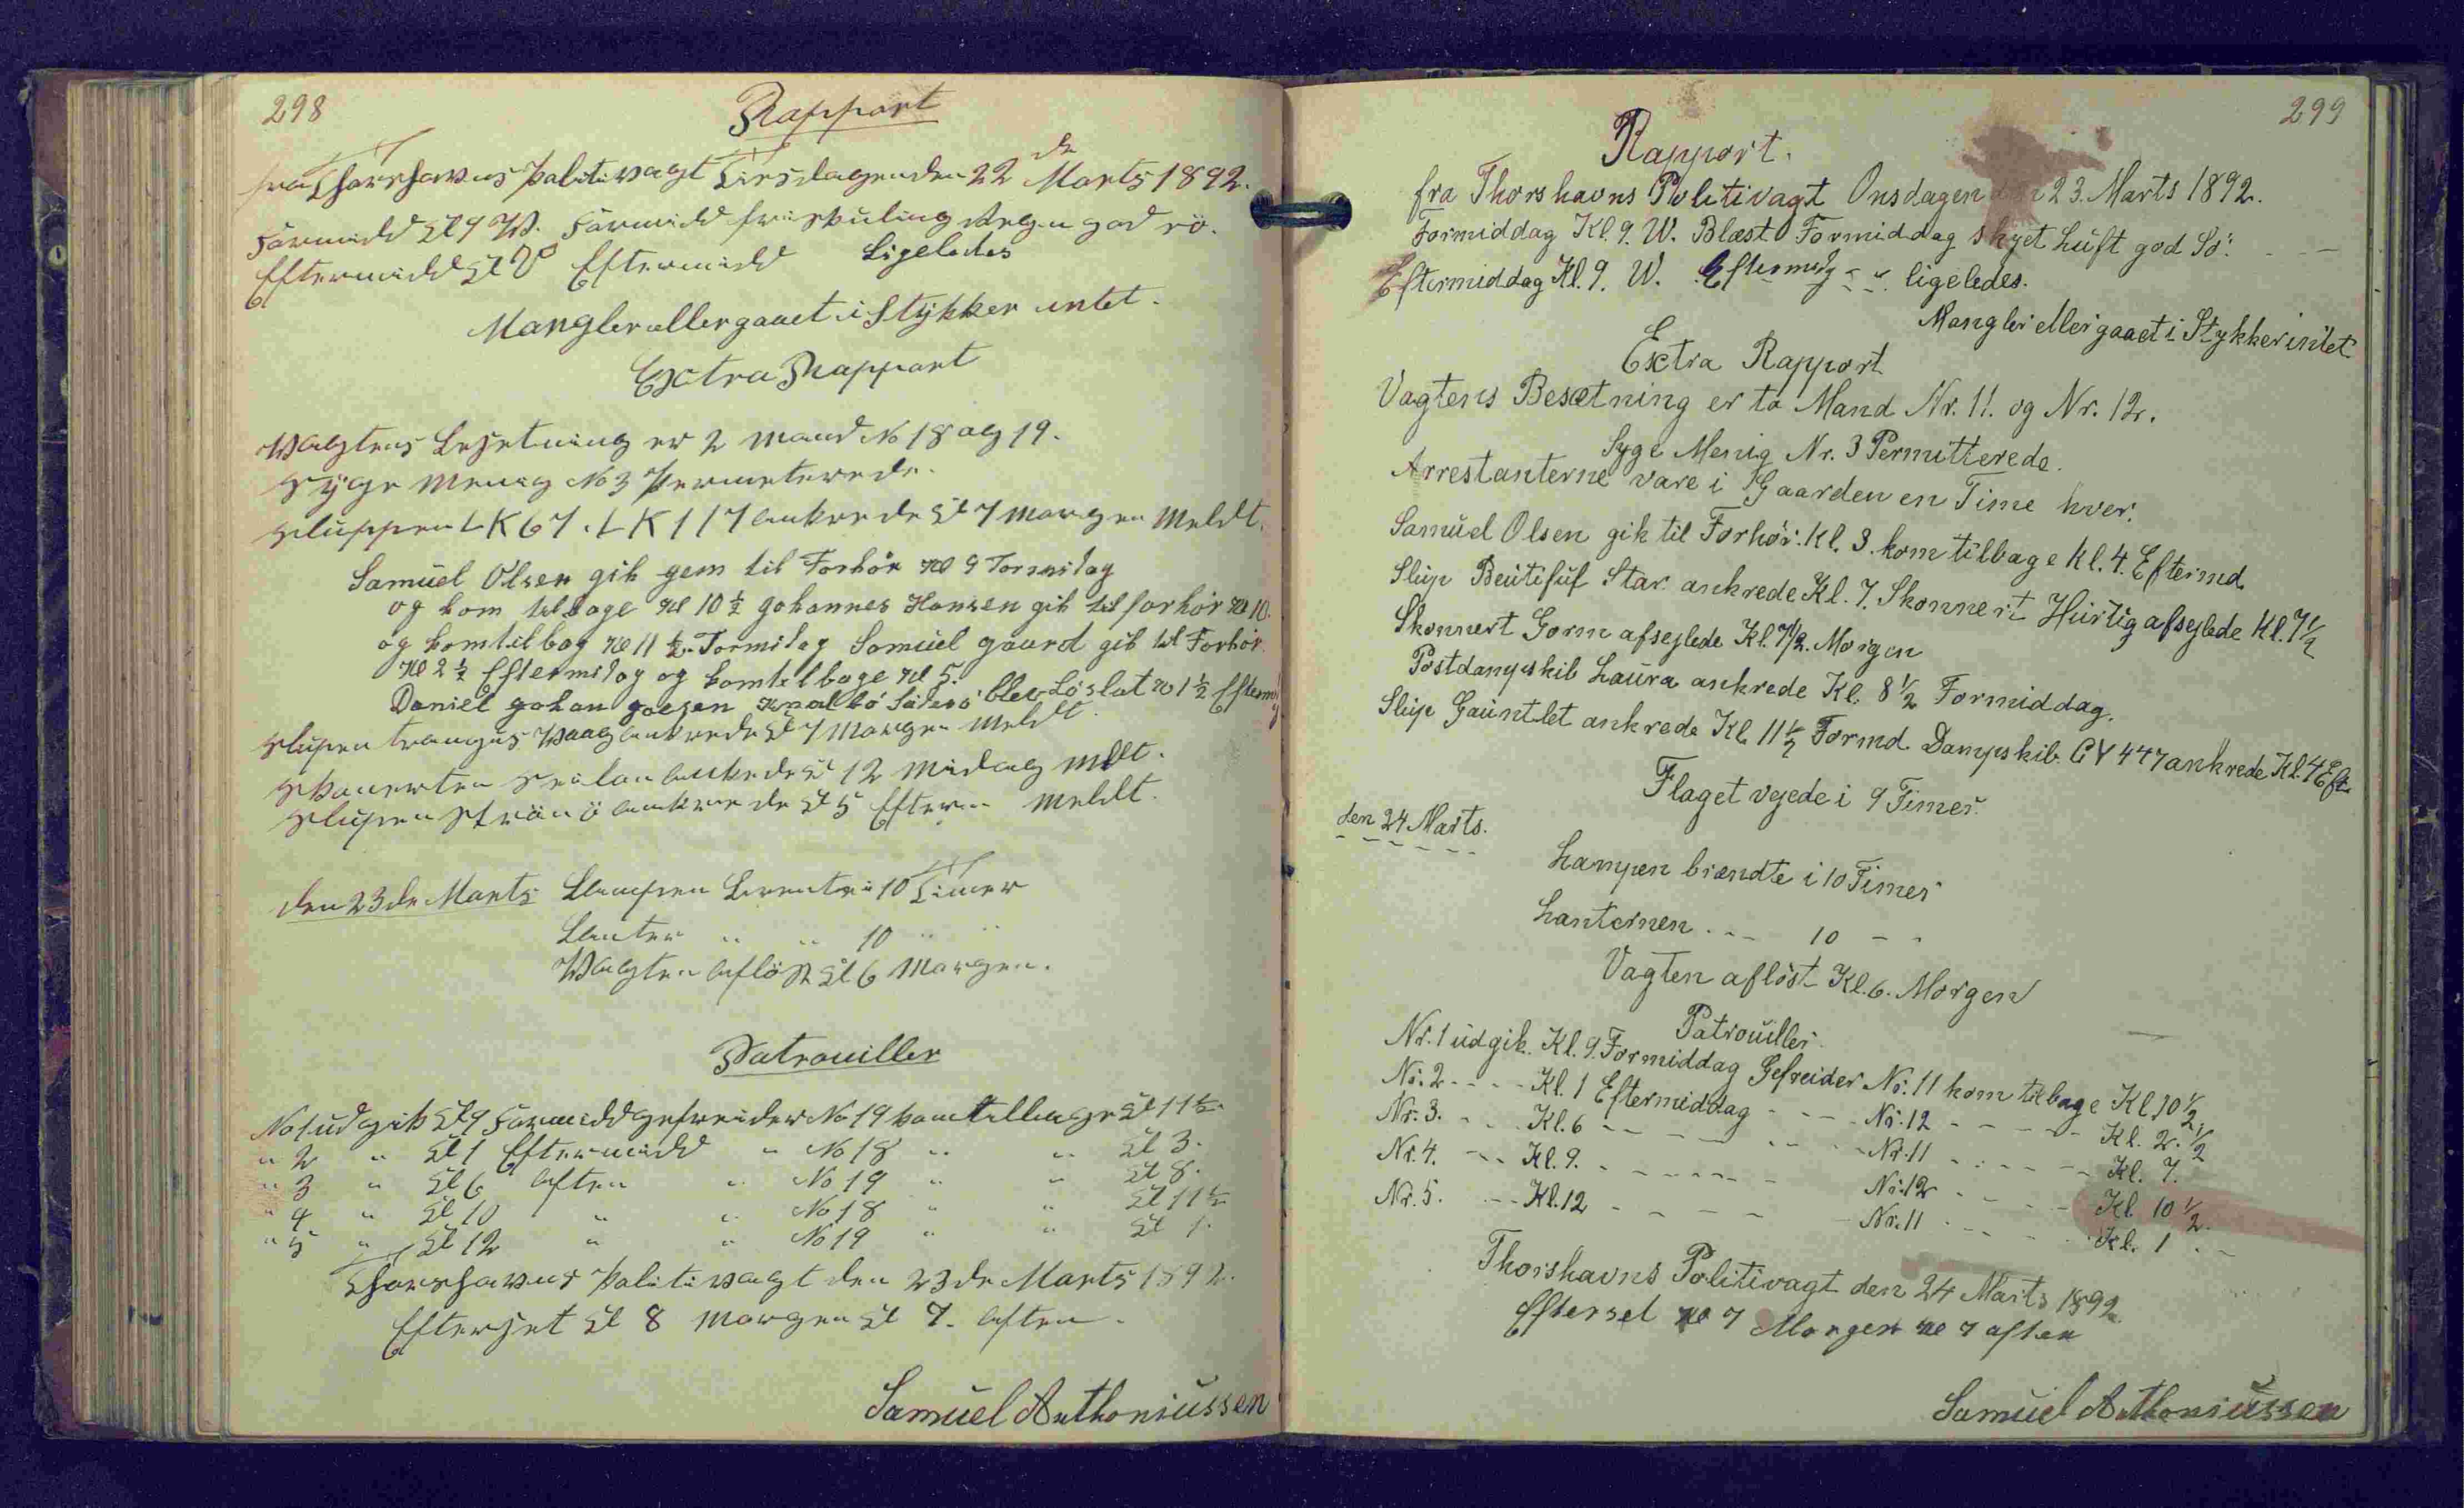 298
Rapport
fra Thorshavns Politivagt Tirsdagen den 22 de Marts 1892.
Formidd Kl 9 W. Formidd friskuling Regn god sö.
Eftermidd Kl 9 Eftermidd Ligeledes
Mangler eller gaaet i Stykker intet.
Extra Rapport
Wagtens Besetning er 2 mand No 18 og 19.
Syge Menig No 3 Permeterede.
Sluppen LK 67. LK 117 ankrede Kl 7 morgen Meldt.
Samuel Olsen gik gem til Forhör Kl 9 Formidag
og kom tilbage Kl 10 ½ Johannes Hansen gik til forhör Kl 10.
og komtilbag Kl 11 ½ Formidag Samuel gaard gik til Forhör
Kl 2 ½ Eftermidag og komtilbage Kl 5.
Daniel Johan Joensen blev Löslat Kl 1 ½ Efterm
Slupen Trangis Waag ankrede Kl 7 morgen Meldt.
Skonerten ankrede Kl 12 Midag mldt.
Slupen Strönö ankrede Kl 5 Efterm meldt.
den 23 de Marts Lampen brente i 10 Timer
Lanter " " 10 " "
Wagten aflöst Kl 6 Morgen.
Patrouiller
No 1 udgik Kl 9 Formidd gefreider No 19 kom tilbage Kl 11 ½
" 2 " Kl 1 Eftermidd " No 18 " " Kl 3.
" 3 " Kl 6 aften " No 19 " " Kl 8.
" 4 " Kl 10 " " No 18 " " Kl 11 ½
" 5 " Kl 12 " " No 19 " " Kl 1.
Thorshavns Politivagt den 23 de Marts 1892.
Efterset Kl 8 Morgen Kl 7. aften.
Samuel Anthoniussen
299
Rapport.
fra Thorshavns Politivagt Onsdagen den 23. Marts 1892.
Formiddag Kl. 9. W. Blæst Formiddag skyet Luft god Sö.
Eftermiddag Kl. 9. W. Eftermdg - - ligeledes.
Mangler eller gaaet i Stykker intet
Extra Rapport
Vagtens Besætning er to Mand Nr. 11. og Nr. 12.
Syge Menig Nr. 3 Permitterede.
Arrestanterne vare i Gaarden en Time hver.
Samuel Olsen gik til Forhör. Kl. 3. kom tilbage Kl. 4. Eftermd.
Slup Beutifuf Star ankrede Kl. 7. Skonnert Hurtig afsejlede Kl. 7 ½
Skonnert Gorm afsejlede Kl. 7 ½. Morgen
Postdampskib Laura ankrede Kl. 8 ½ Formiddag.
Slup Gauntlet ankrede Kl. 11 ½ Formd. Dampskib. GY 447 ankrede Kl. 4 Eft.
Flaget vejede i 9 Timer.
den 24 Marts.
Lampen brændte i 10 Timer
Lanternen . - - 10 - -
Vagten aflöst Kl. 6. Morgen
Patrouiller.
Nr. 1 udgik. Kl. 9. Formiddag Gefreider Nr. 11 kom tilbage Kl. 10 ½.
Nr. 2 - - - - Kl. 1 Eftermiddag - - - Nr. 12 - - - - Kl. 2. ½
Nr. 3. - - - Kl. 6 - - - - - - Nr. 11 - - - - Kl. 7.
Nr. 4. - - - Kl. 9. - - - - - - Nr. 12 - - - - Kl. 10 ½.
Nr. 5. - - - Kl. 12 - - - - - Nr. 11 - - - - Kl. 1 . -
Thorshavns Politivagt den 24 Marts 1892.
Efterset Kl 7 Morgen Kl 7 aften
Samuel Anthoniussen